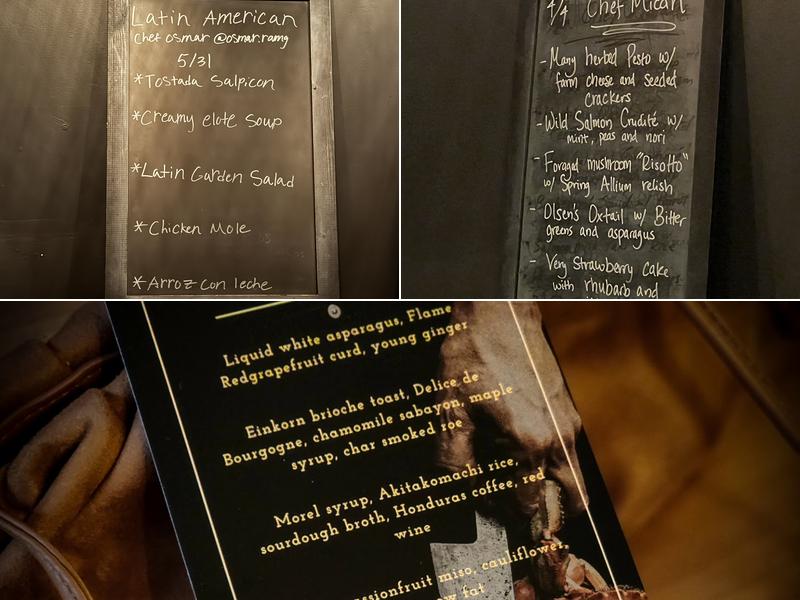 Latin American
Chef Osmar @osmar.ramg
5/31
*Tostada Salpicon
*Creamy elote Soup
*Latin Garden Salad
*Chicken Mole
*Arroz con leche
4/4 Chef Micah
- Many herbed Pesto w/
farm cheese and seeded
crackers
- Wild Salmon Crudité w/
mint, peas and nori
- Foraged mushroom "Risotto"
w/ Spring Allium relish
- Olsen's Oxtail w/ Bitter
greens and asparagus
- Very Strawberry cake
with rhubarb and
Liquid white asparagus, Flame
Redgrapefruit curd, young ginger
Einkorn brioche toast, Delice de
Bourgogne, chamomile sabayon, maple
syrup, char smoked roe
Morel syrup, Akitakomachi rice,
sourdough broth, Honduras coffee, red
wine
miso, cauliflower,
fat